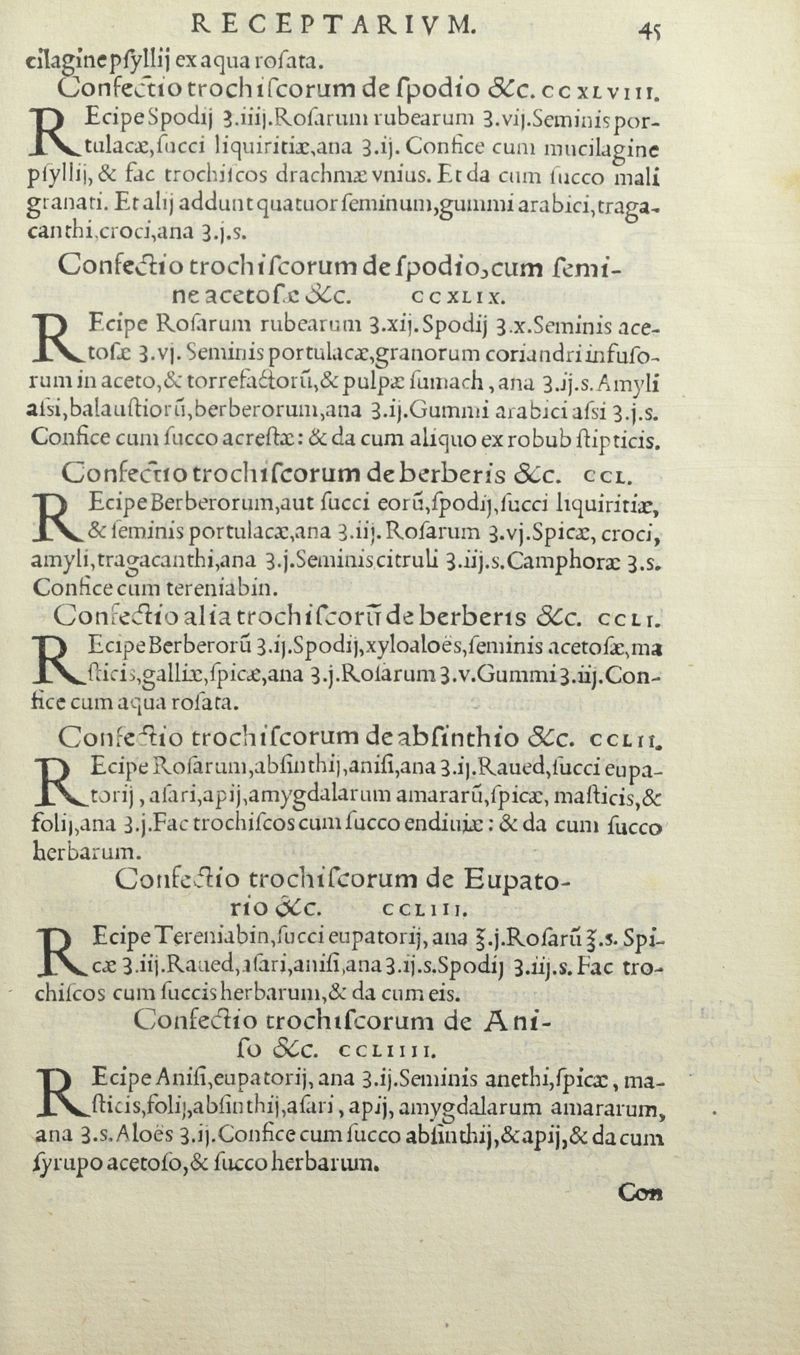 RECEPTARIVM. 45
cilagine pſyllij ex aqua roſata.
Confectio trochiſcorum de ſpodio &c. CCXLVIII.
REcipe Spodij ʒ.iiij.Roſarum rubearum ʒ.vij.Seminis por-
tulacæ,ſucci liquiritiæ,ana ʒ.ij. Confice cum mucilagine
pſyllij, & fac trochiſcos drachmæ vnius. Et da cum ſucco mali
granati. Et alij addunt quatuor ſeminum,gummi arabici,traga-
canthi,croci,ana ʒ.j.s.
Confectio trochiſcorum de ſpodio,cum ſemi-
ne acetoſæ &c. CCXLIX.
REcipe Roſarum rubearum ʒ.xij.Spodij ʒ.x.Seminis ace-
toſæ ʒ.vj. Seminis portulacæ,granorum coriandri infuſo-
rum in aceto,& torrefactorū,& pulpæ ſumach, ana ʒ.ij.s.Amyli
aſsi,balauſtiorū,berberorum,ana ʒ.ij.Gummi arabici aſsi ʒ.j.s.
Confice cum ſucco acreſtæ: & da cum aliquo ex robub ſtipticis.
Confectio trochiſcorum de berberis &c. CCL.
REcipe Berberorum,aut ſucci eorū,ſpodij,ſucci liquiritiæ,
& ſeminis portulacæ,ana ʒ.iij. Roſarum ʒ.vj.Spicæ, croci,
amyli,tragacanthi,ana ʒ.j.Seminis citruli ʒ.iij.s.Camphoræ ʒ.s.
Confice cum tereniabin.
Confectio alia trochiſcorū de berberis &c. CCLI.
REcipe Berberorū ʒ.ij.Spodij,xyloaloës,ſeminis acetoſæ,ma
ſticis,galliæ,ſpicæ,ana ʒ.j.Roſarum ʒ.v.Gummi ʒ.iij.Con-
fice cum aqua roſata.
Confectio trochiſcorum de abſinthio &c. CCLII.
REcipe Roſarum,abſinthij,aniſi,ana ʒ.ij.Raued,ſucci eupa-
torij, aſari,apij,amygdalarum amararū,ſpicæ, maſticis,&
folij,ana ʒ.j.Fac trochiſcos cum ſucco endiuiæ: & da cum ſucco
herbarum.
Confectio trochiſcorum de Eupato-
rio &c. CCLIII.
REcipe Tereniabin,ſucci eupatorij, ana ℥.j.Roſarū ℥.s. Spi-
cæ ʒ.iij.Raued,aſari,aniſi,ana ʒ.ij.s.Spodij ʒ.iij.s. Fac tro-
chiſcos cum ſuccis herbarum,& da cum eis.
Confectio trochiſcorum de Ani-
ſo &c. CCLIIII.
REcipe Aniſi,eupatorij, ana ʒ.ij.Seminis anethi,ſpicæ, ma-
ſticis,folij,abſinthij,aſari, apij, amygdalarum amararum,
ana ʒ.s.Aloës ʒ.ij.Confice cum ſucco abſinthij,& apij,& da cum
ſyrupo acetoſo,& ſucco herbarum.
Con